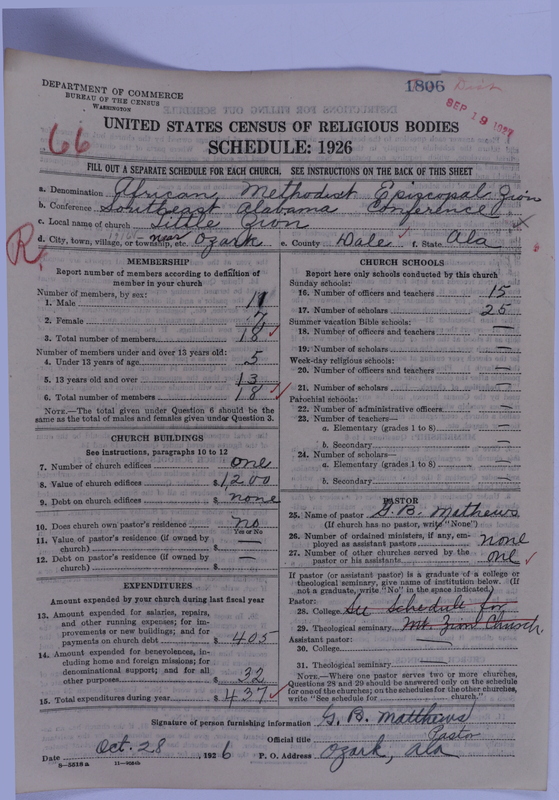 1806
DEPARTMENT OF COMMERCE
BUREAU OF THE CENSUS
WASHINGTON
SEP 19 1927
66
UNITED STATES CENSUS OF RELIGIOUS BODIES
SCHEDULE: 1926
FILL OUT A SEPARATE SCHEDULE FOR EACH CHURCH. SEE INSTRUCTIONS ON THE BACK OF THIS SHEET
a. Denomination African Methodist Episcopal Zion
b. Conference Southeast Alabama Conference
c. Local name of church Little Zion
d. City, town, village, or township, etc. near Ozark e. County Dale f. State Ala
R.
MEMBERSHIP
Report number of members according to definition of
member in your church
Number of members, by sex:
1. Male 11
2. Female 7
3. Total number of members 18
Number of members under and over 13 years old:
4. Under 13 years of age 5
5. 13 years old and over 13
6. Total number of members 18
NOTE.—The total given under Question 6 should be
same as the total of males and females given under Question 3.
CHURCH BUILDINGS
See instructions, paragraphs 10 to 12
7. Number of church edifices one
8. Value of church edifices $1200
9. Debt on church edifices $ none
10. Does church own pastor's residence no
Yes or No
11. Value of pastor's residence (if owned by
church) $ —
12. Debt on pastor's residence (if owned by
church) $ —
EXPENDITURES
Amount expended by your church during last fiscal year
13. Amount expended for salaries, repairs,
and other running expenses; for im-
provements or new buildings; and for
payments on church debt $ 405
14. Amount expended for benevolences, in-
cluding home and foreign missions; for
denominational support; and for all
other purposes $ 32
15. Total expenditures during year $ 437
CHURCH SCHOOLS
Report here only schools conducted by this church
Sunday schools:
16. Number of officers and teachers 15
17. Number of scholars 25
Summer vacation Bible schools:
18. Number of officers and teachers —
19. Number of scholars —
Week-day religious schools:
20. Number of officers and teachers —
21. Number of scholars —
Parochial schools:
22. Number of administrative officers —
23. Number of teachers—
a. Elementary (grades 1 to 8) —
b. Secondary —
24. Number of scholars—
a. Elementary (grades 1 to 8) —
b. Secondary —
PASTOR
25. Name of pastor G. B. Mathews
(If church has no pastor, write "None")
26. Number of ordained ministers, if any, em-
ployed as assistant pastors none
27. Number of other churches served by the
pastor or his assistants one
If pastor (or assistant pastor) is a graduate of a college or
theological seminary, give name of institution below. (If
not a graduate, write "No" in the space indicated.)
Pastor:
28. College See Schedule for
29. Theological seminary Mt. Zion Church
Assistant pastor:
30. College —
31. Theological seminary —
NOTE.—Where one pastor serves two or more churches,
Questions 28 and 29 should be answered only on the schedule
for one of the churches; on the schedules for the other churches,
write "See schedule for church."
Signature of person furnishing information G. B. Matthews
Official title Pastor
Date Oct. 28, 1926 P. O. Address Ozark, Ala
8—5518a